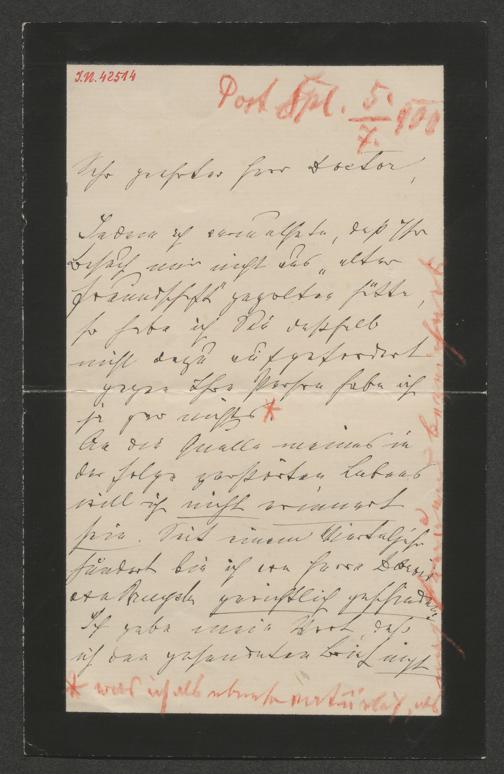 I.N. 42514
Post Spl. 5./7. 900
Sehr geehrter Herr Doctor,
Indem ich vermuthete, daß Ihr
Besuch mir nicht aus „alter
Freundschaft“ gegolten hätte,
so habe ich Sie deßhalb
nicht dazu aufgefordert
gegen Ihre Person habe ich
ja gar nichts *
An die Quelle meines in
der Folge zerstörten Lebens
will ich nicht erinnert
sein. Seit einem Vierteljahr
hundert bin ich von Herrn
gerichtlich geschieden
Ich gebe mein Wort, daß
ich den gesandten Brief nicht
* was ich als ebenso natürlich, als